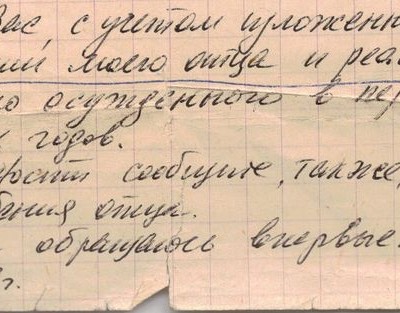 Вас, с учетом изложенн
ии моего отца и реа
но осужденного в пер
х годов.
сообщите, также,
бания отца.
обращаюсь впервые.
г.